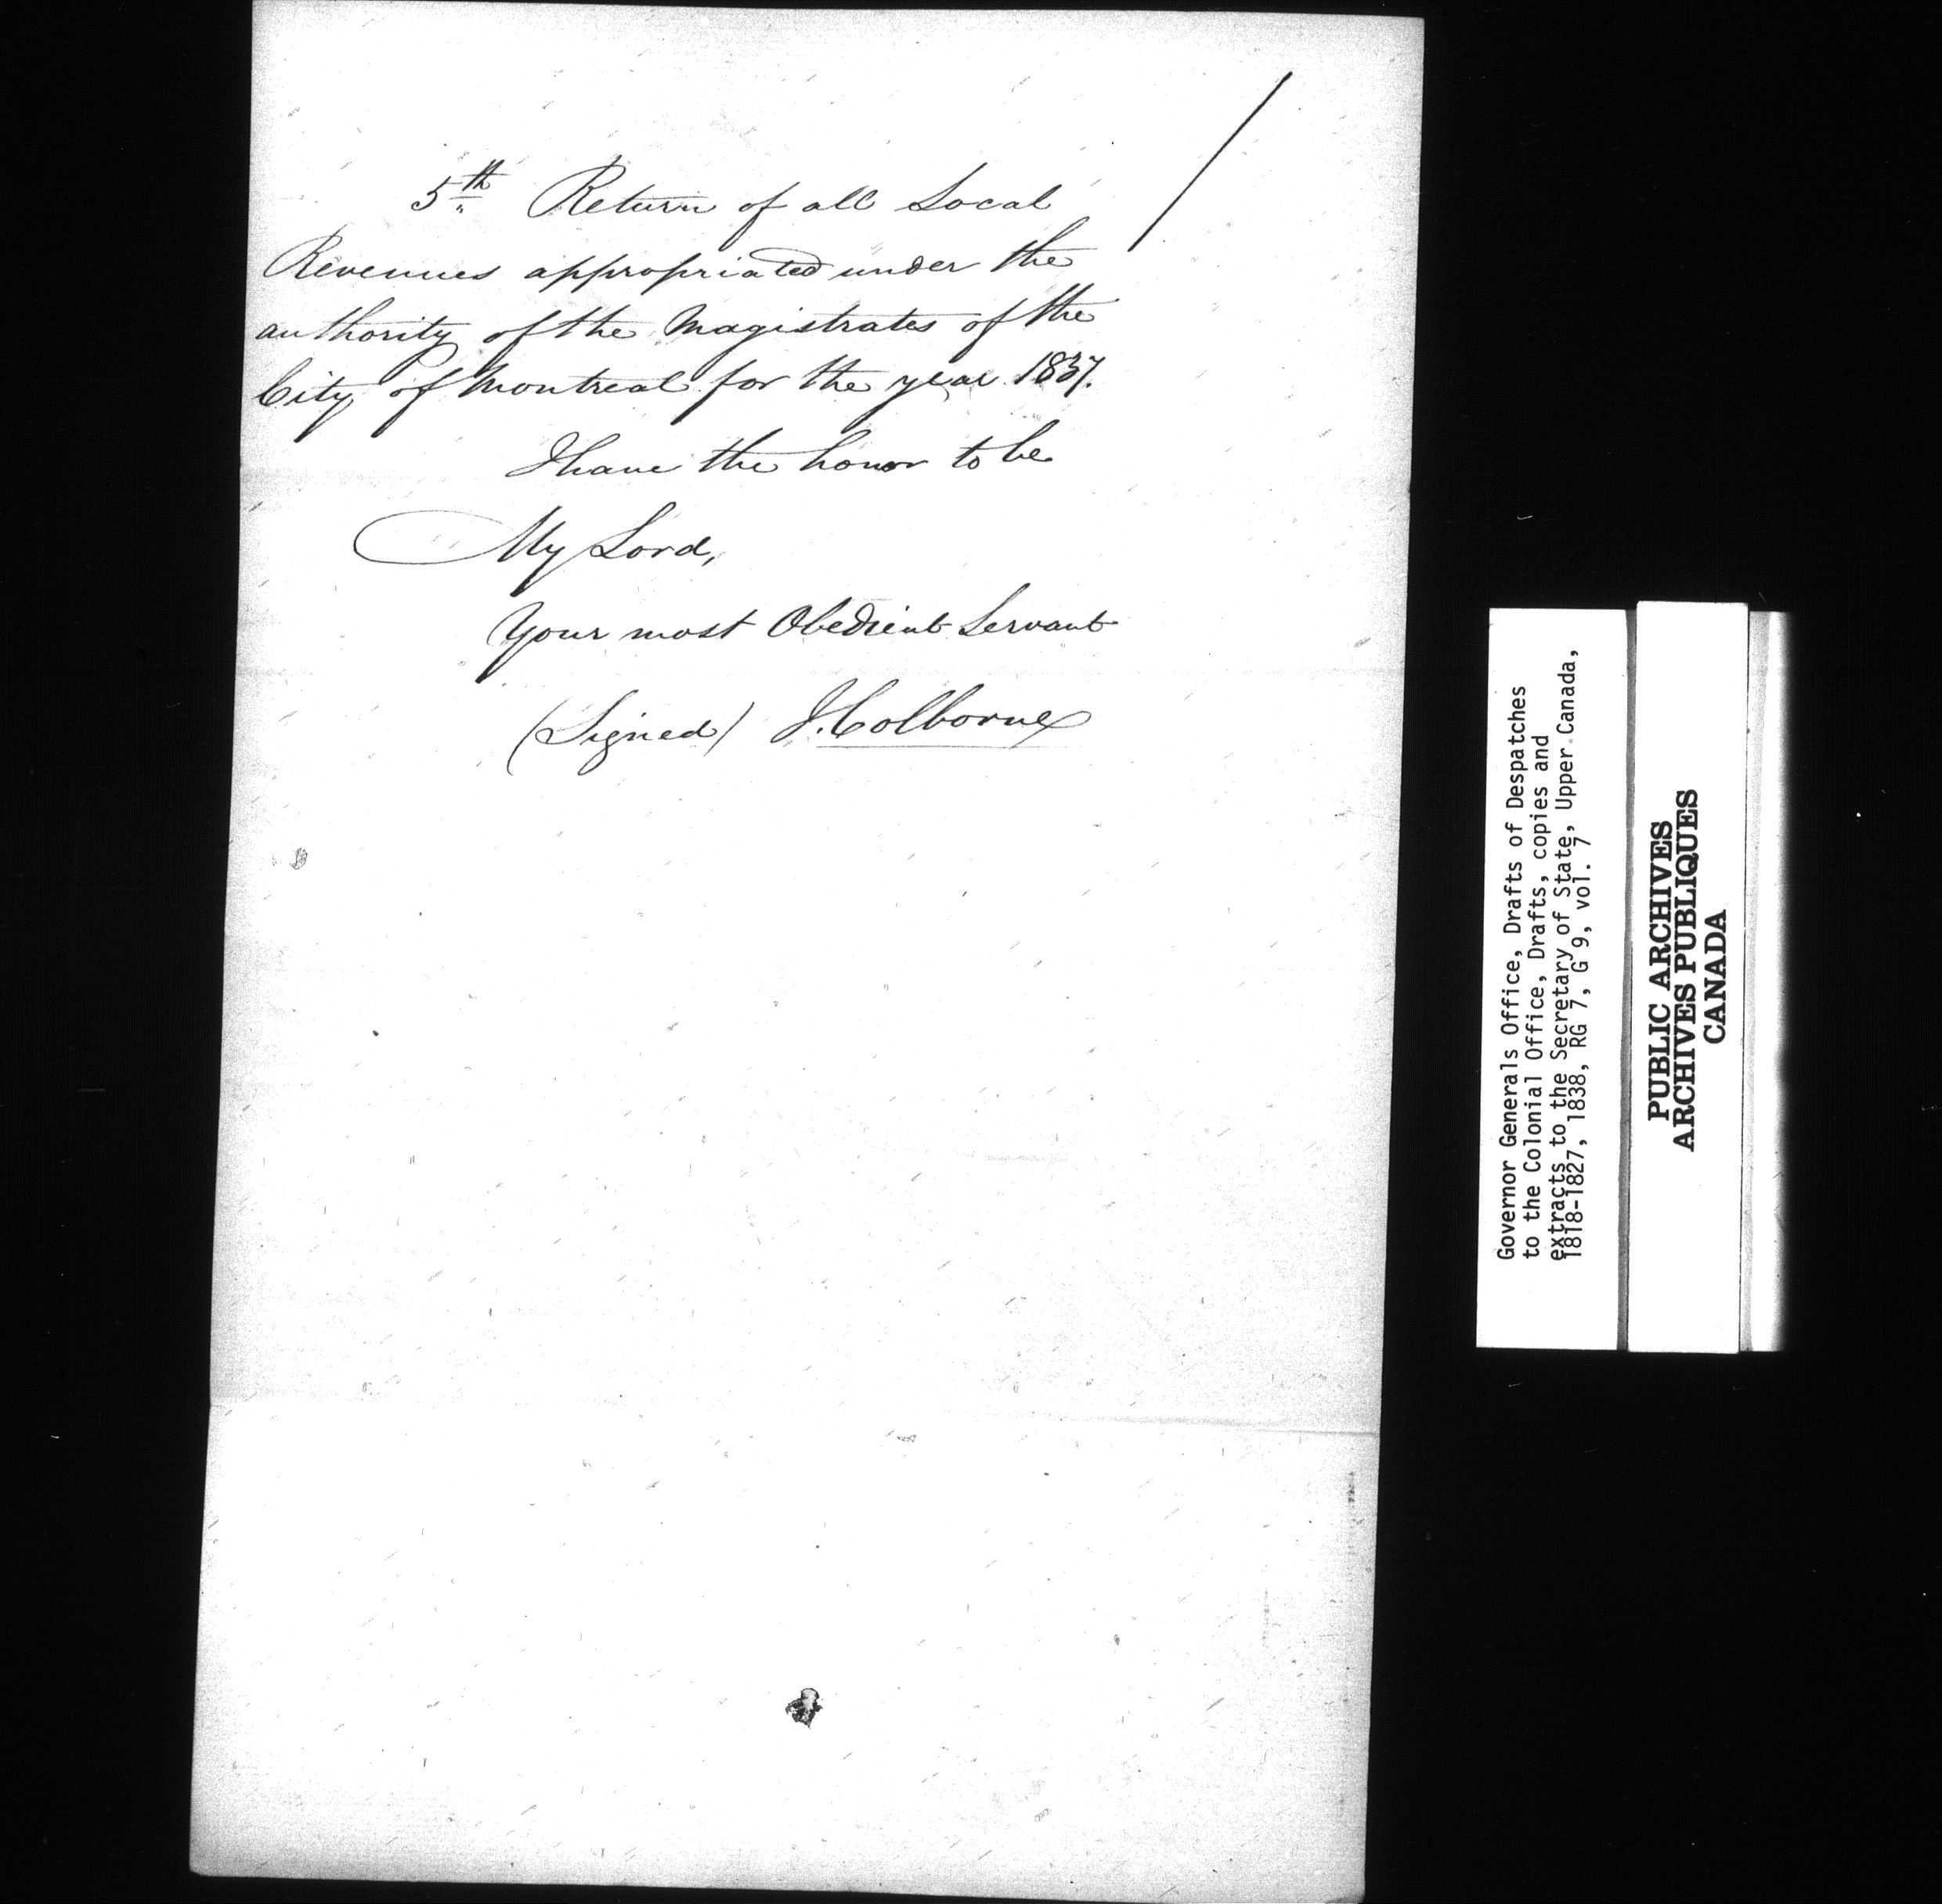 5th Return of all Local
Revenues appropriated under the
authority of the Magistrates of the
City of Montreal for the year 1837.
I have the honor to be
My Lord,
Your most Obedient Servant
(Signed) J. Colborne
Governor Generals Office, Drafts of Despatches
to the Colonial Office, Drafts, copies and
extracts to the Secretary of State, Upper Canada,
1818-1827, 1838, RG 7, G 9, vol. 7
PUBLIC ARCHIVES
ARCHIVES PUBLIQUES
CANADA